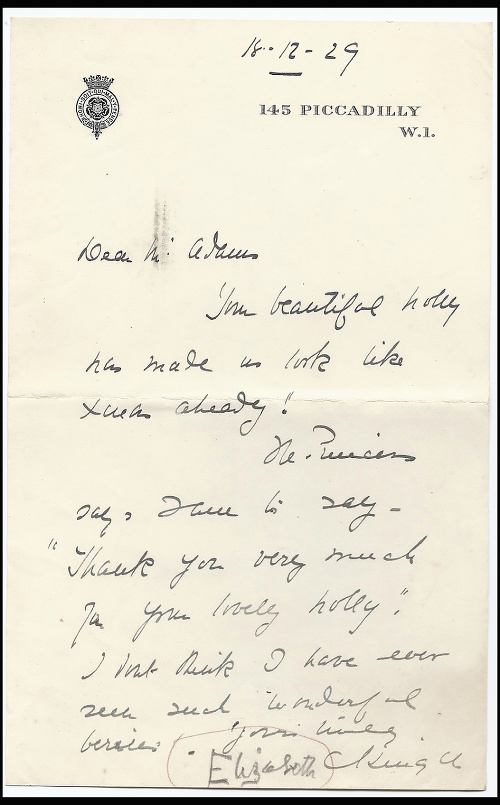 18-12-29
145 PICCADILLY
W.1.
Dear Mr Adams
Your beautiful holly
has made us look like
Xmas already!
The Princess
says I am to say -
"Thank you very much
for your lovely holly".
I dont think I have ever
seen such wonderful
berries. Yours
Elizabeth